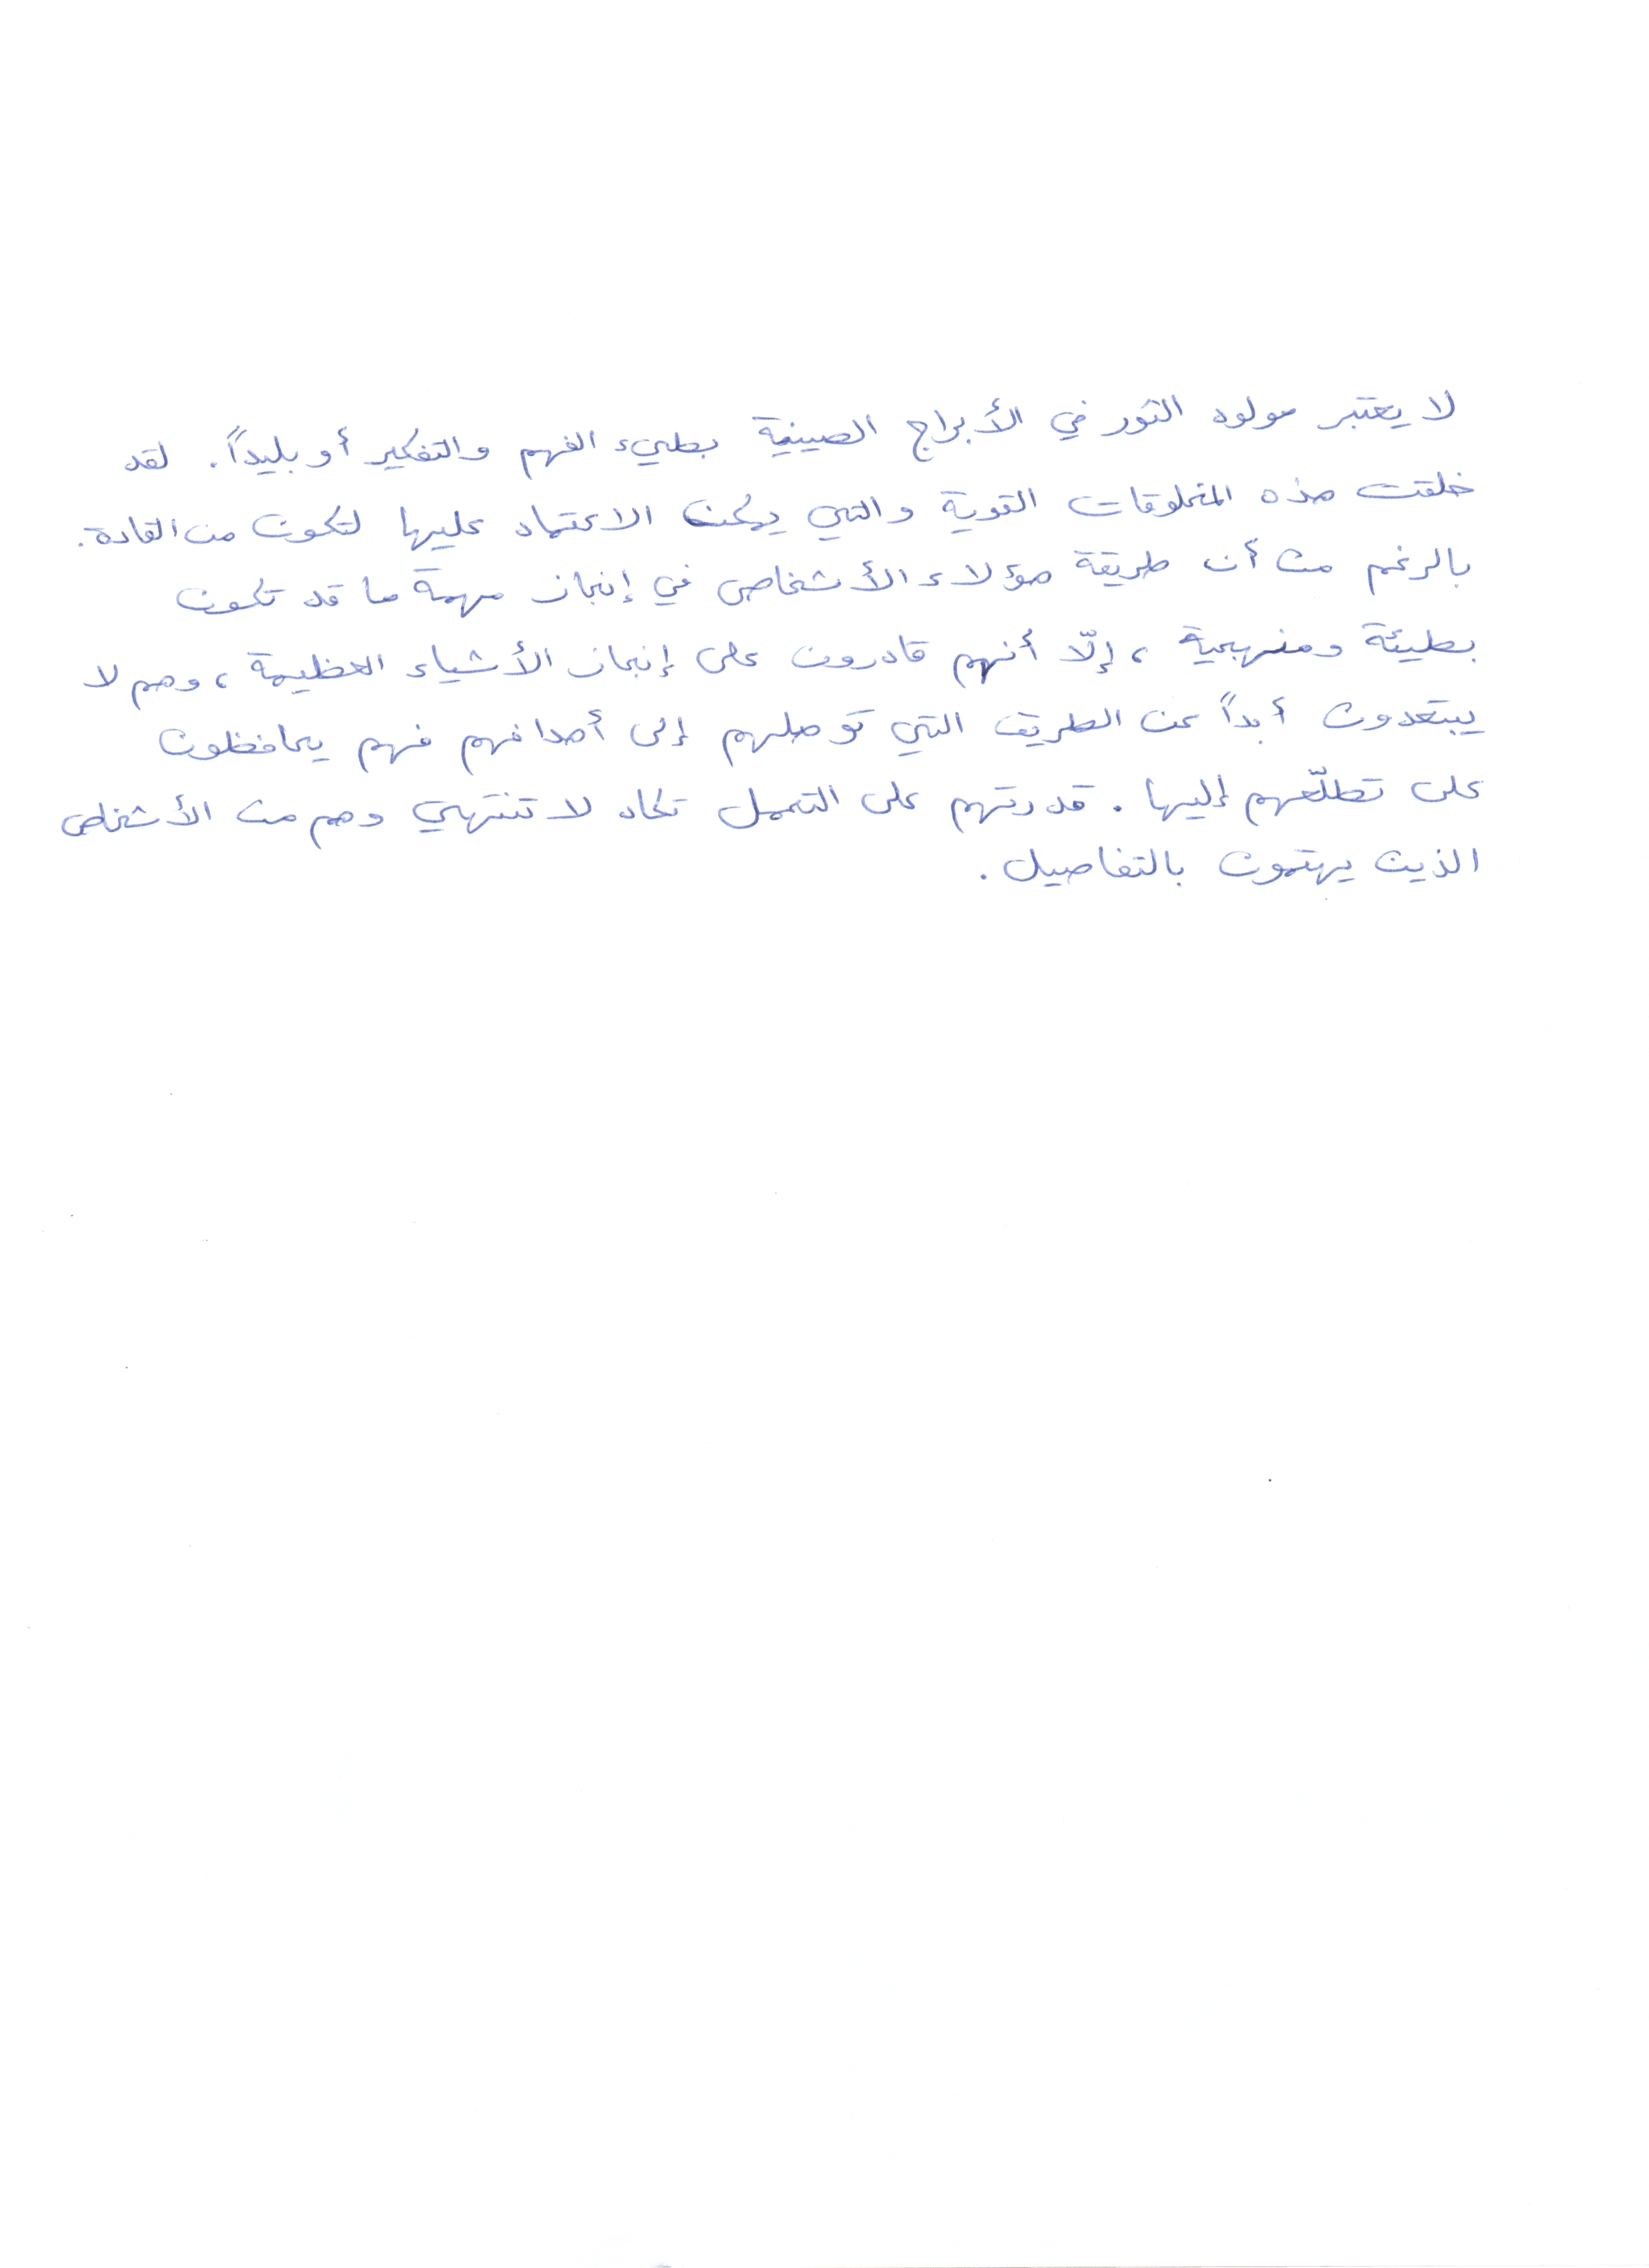 لا يعتبر مولود الثور في الأبراج الصينية بطيء الفهم والتفكير أو بليداً. لقد
خلقت هذه المخلوقات القوية والتي يمكن الاعتماد عليها لتكون من القادة.
بالرغم من أن طريقة هؤلاء الأشخاص في إنجاز مهمة ما قد تكون
بطيئة ومنهجية، إلّا أنهم قادرون على إنجاز الأشياء العظيمة، وهم لا
يبتعدون أبداً عن الطريق التي توصلهم إلى أهدافهم فهم يحافظون
على تطلّعهم إليها. قدرتهم على التحمل تكاد لا تنتهي وهم من الأشخاص
الذين يهتمون بالتفاصيل.